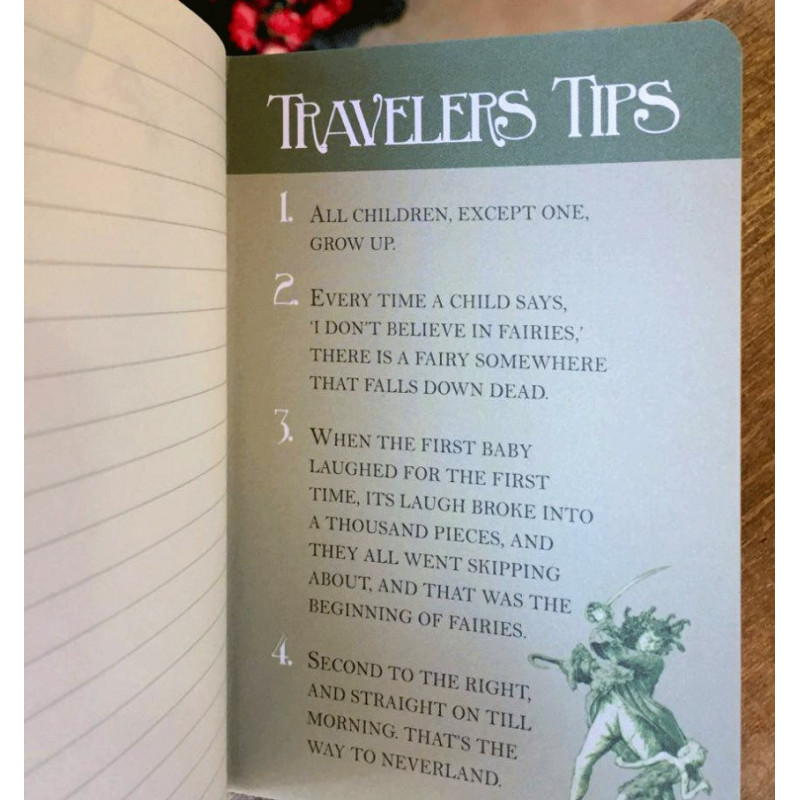 TRAVELERS TIPS
1. ALL CHILDREN, EXCEPT ONE,
GROW UP.
2. EVERY TIME A CHILD SAYS,
'I DON'T BELIEVE IN FAIRIES,'
THERE IS A FAIRY SOMEWHERE
THAT FALLS DOWN DEAD.
3. WHEN THE FIRST BABY
LAUGHED FOR THE FIRST
TIME, ITS LAUGH BROKE INTO
A THOUSAND PIECES, AND
THEY ALL WENT SKIPPING
ABOUT, AND THAT WAS THE
BEGINNING OF FAIRIES.
4. SECOND TO THE RIGHT,
AND STRAIGHT ON TILL
MORNING. THAT'S THE
WAY TO NEVERLAND.